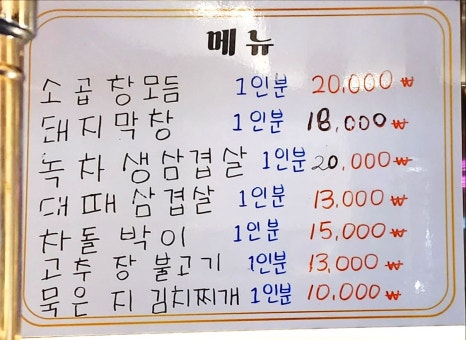 메뉴
소곱창모듬 1인분 20,000₩
돼지막창 1인분 18,000₩
녹차 생삼겹살 1인분 20,000₩
대패삼겹살 1인분 13,000₩
차돌박이 1인분 15,000₩
고추장불고기 1인분 13,000₩
묵은지 김치찌개 1인분 10,000₩